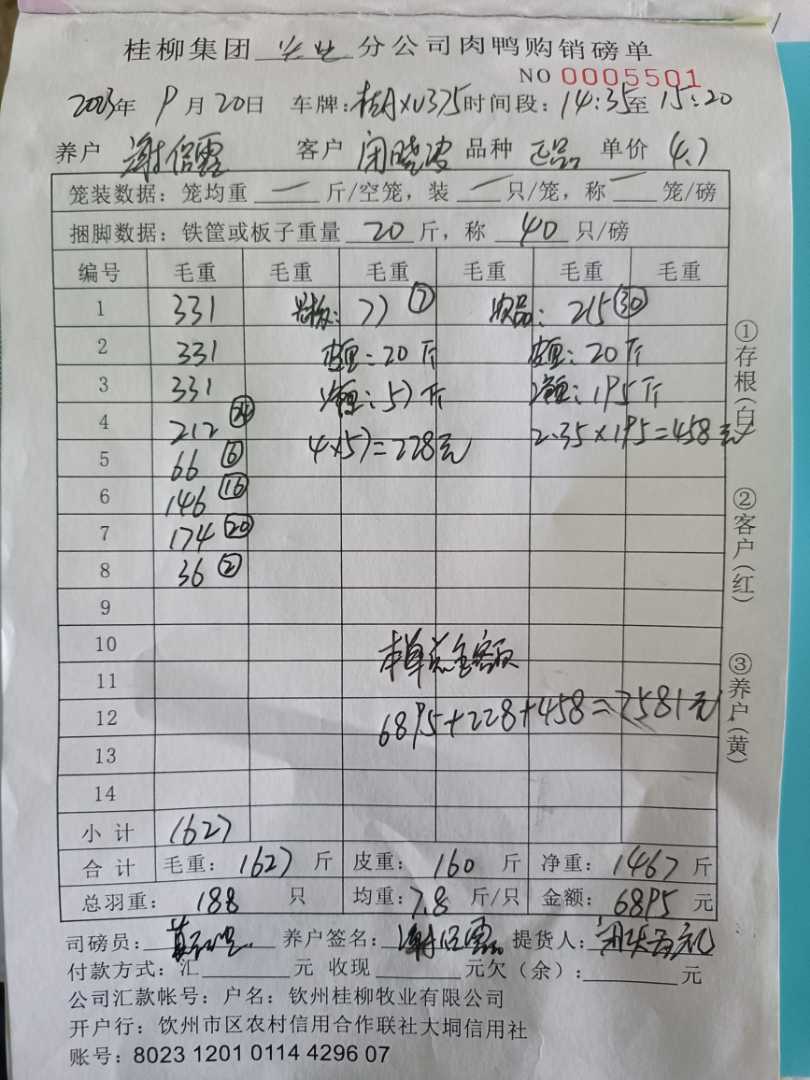 桂柳集团 分公司肉鸭购销磅单
NO 0005501
2023年 9月20日 车牌:桂AXU375 时间段:14:35至15:20
养户 谢 客户 闭晓波 品种 正品 单价 4.7
笼装数据:笼均重 — 斤/空笼,装 — 只/笼,称 — 笼/磅
捆脚数据:铁筐或板子重量 20 斤,称 40 只/磅
编号 毛重 毛重 毛重 毛重 毛重 毛重
1 331 77 ⑦ 次品:215 ㉚
2 331 皮重:20斤 皮重:20斤
3 331 净重:57斤 净重:195斤
4 212 4×57=228元 2.35×195=458元
5 66 ⑥
6 146 ⑯
7 174 ⑳
8 36 ②
9
10 本单总金额
11
12 6895+228+458=7581元
13
14
小计 1627
合计 毛重:1627斤 皮重:160斤 净重:1467斤
总羽重:188只 均重:7.8斤/只 金额:6895元
司磅员: 养户签名:谢 提货人:
付款方式:汇 元 收现 元欠(余): 元
公司汇款帐号:户名:钦州桂柳牧业有限公司
开户行:钦州市区农村信用合作联社大垌信用社
账号:8023 1201 0114 4296 07
①存根(白)
②客户(红)
③养户(黄)